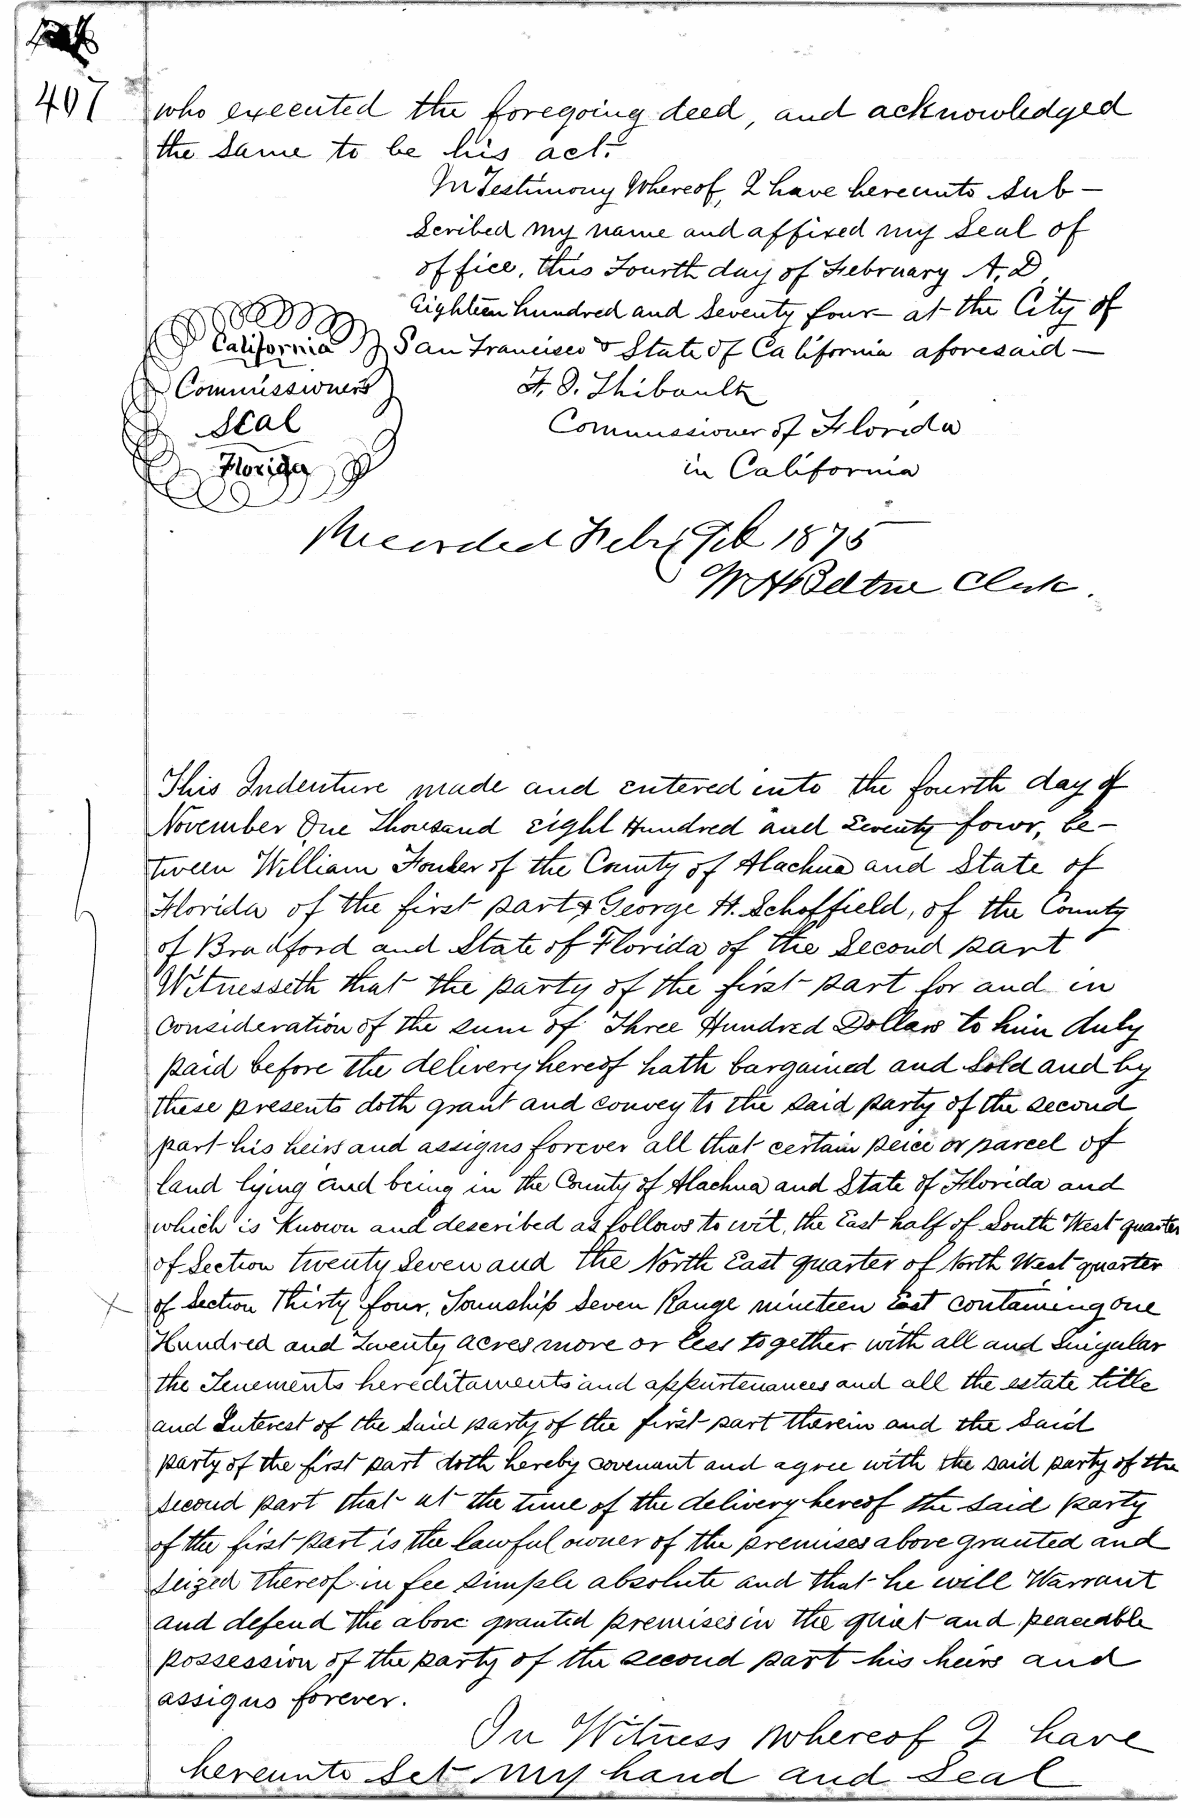 407
who executed the foregoing deed, and acknowledged
the Same to be his act.
In Testimony Whereof, I have hereunto Sub-
scribed my name and affixed my Seal of
office, this Fourth day of February A.D,
Eighteen hundred and Seventy four at the City of
San Francisco & State of California aforesaid -
California
Commissioner's
Seal
Florida
F. D. Thibault
Commissioner of Florida
in California
Recorded Feby 9th 1875
W H Belton Clerk.
This Indenture made and entered into the fourth day of
November One Thousand Eight Hundred and Seventy four, be-
tween William of the County of Alachua and State of
Florida of the first part & George H. Schoffield, of the County
of Bradford and State of Florida of the Second part
Witnesseth that the party of the first part for and in
consideration of the sum of Three Hundred Dollars to him duly
paid before the delivery hereof hath bargained and Sold and by
these presents doth grant and convey to the said party of the second
part his heirs and assigns forever all that certain peice or parcel of
land lying and being in the County of Alachua and State of Florida and
which is Known and described as follows to wit, the East half of South West quarter
of Section twenty Seven and the North East quarter of North West quarter
of Section Thirty four, Township Seven Range nineteen East containing one
Hundred and Twenty acres more or less together with all and Singular
the Tenements hereditaments and appurtenances and all the estate title
and Interest of the Said party of the first part therein and the Said
party of the first part doth hereby covenant and agree with the said party of the
second part that at the time of the delivery hereof the said party
of the first part is the lawful owner of the premises above granted and
seized thereof in fee simple absolute and that he will Warrant
and defend the above granted premises in the quiet and peaceable
possession of the party of the second part his heirs and
assigns forever.
In Witness Whereof I have
hereunto Set my hand and Seal